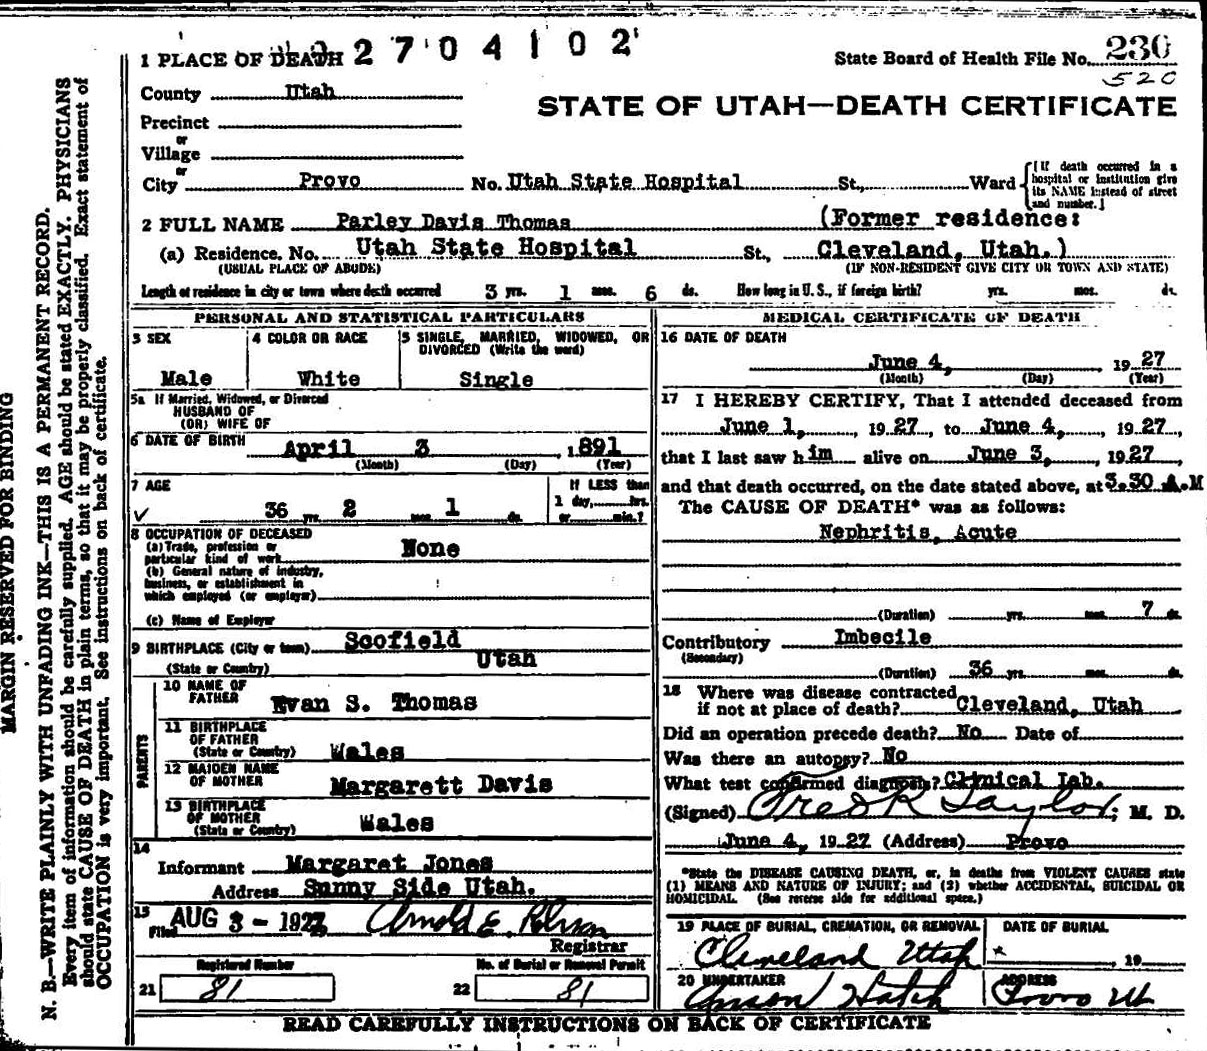 2 7 0 4 1 0 2
State Board of Health File No. 230
520
1 PLACE OF DEATH
County Utah
STATE OF UTAH—DEATH CERTIFICATE
Precinct
or
Village
or
City Provo No. Utah State Hospital St., Ward
[If death occurred in a
hospital or institution give
its NAME instead of street
and number.]
2 FULL NAME Parley Davis Thomas (Former residence:
(a) Residence. No. Utah State Hospital St., Cleveland, Utah.)
(USUAL PLACE OF ABODE) (IF NON-RESIDENT GIVE CITY OR TOWN AND STATE)
Length of residence in city or town where death occurred 3 yrs. 1 mos. 6 ds. How long in U. S., if foreign birth? yrs. mos. ds.
PERSONAL AND STATISTICAL PARTICULARS
3 SEX
Male
4 COLOR OR RACE
White
5 SINGLE, MARRIED, WIDOWED, OR
DIVORCED (Write the word)
Single
5a If Married, Widowed, or Divorced
HUSBAND OF
(OR) WIFE OF
6 DATE OF BIRTH April 3, 1891
(Month) (Day) (Year)
7 AGE
36 yrs. 2 mos. 1 ds.
If LESS than
1 day, hrs.
or min.?
8 OCCUPATION OF DECEASED
(a) Trade, profession or
particular kind of work None
(b) General nature of industry,
business, or establishment in
which employed (or employer)
(c) Name of Employer
9 BIRTHPLACE (City or town) Scofield
(State or Country) Utah
PARENTS
10 NAME OF
FATHER Evan S. Thomas
11 BIRTHPLACE
OF FATHER
(State or Country) Wales
12 MAIDEN NAME
OF MOTHER Margarett Davis
13 BIRTHPLACE
OF MOTHER
(State or Country) Wales
14
Informant Margaret Jones
Address Sunny Side Utah.
15
Filed AUG 3 - 1927
Arnold E.
Registrar
Registered Number
21 81
No. of Burial or Removal Permit
22 81
MEDICAL CERTIFICATE OF DEATH
16 DATE OF DEATH
June 4, 1927
(Month) (Day) (Year)
17 I HEREBY CERTIFY, That I attended deceased from
June 1, 1927, to June 4, 1927,
that I last saw him alive on June 3, 1927,
and that death occurred, on the date stated above, at 3.30 A.M
The CAUSE OF DEATH* was as follows:
Nephritis, Acute
(Duration) yrs. mos. 7 ds.
Contributory Imbecile
(Secondary)
(Duration) 36 yrs. mos. ds.
18 Where was disease contracted
if not at place of death? Cleveland, Utah
Did an operation precede death? No Date of
Was there an autopsy? No
What test confirmed diagnosis? Clinical Lab.
(Signed) Fred R Taylor, M. D.
June 4, 1927 (Address) Provo
*State the DISEASE CAUSING DEATH, or, in deaths from VIOLENT CAUSES state
(1) MEANS AND NATURE OF INJURY; and (2) whether ACCIDENTAL, SUICIDAL OR
HOMICIDAL. (See reverse side for additional space.)
19 PLACE OF BURIAL, CREMATION, OR REMOVAL
Cleveland Utah
DATE OF BURIAL
19
20 UNDERTAKER
Anson Hatch
ADDRESS
Provo Ut
READ CAREFULLY INSTRUCTIONS ON BACK OF CERTIFICATE
MARGIN RESERVED FOR BINDING
N. B.—WRITE PLAINLY WITH UNFADING INK—THIS IS A PERMANENT RECORD.
Every item of information should be carefully supplied. AGE should be stated EXACTLY. PHYSICIANS
should state CAUSE OF DEATH in plain terms, so that it may be properly classified. Exact statement of
OCCUPATION is very important. See instructions on back of certificate.